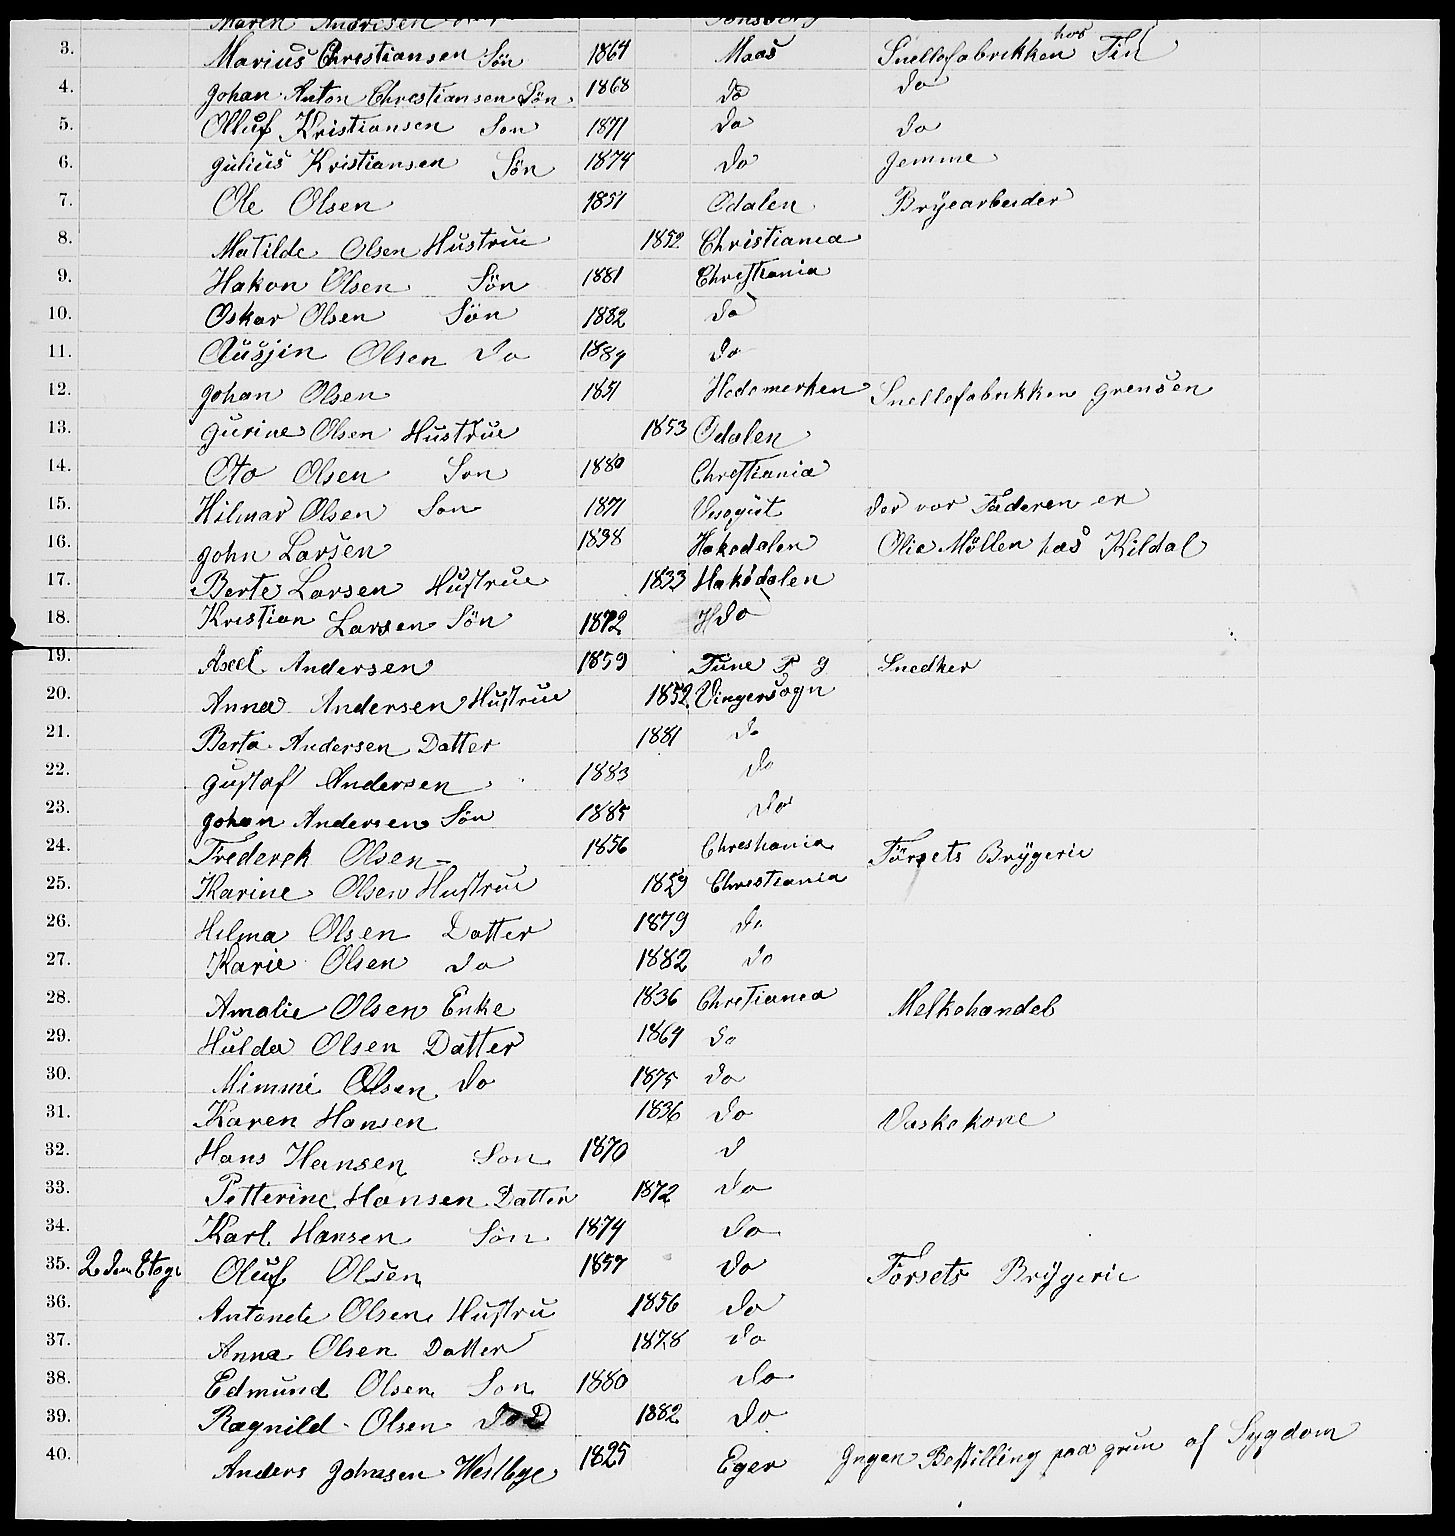 Maren Andresen
3. Marius Christiansen Sön 1864 Moss Snellefabrikken hos
4. Johan Anton Christiansen Sön 1868 do do
5. Olluf Kristiansen Son 1871 do do
6. Julius Kristiansen Sön 1874 do Jemme
7. Ole Olsen 1851 Odalen Bryearbeider
8. Matilde Olsen Hustrue 1852 Christiania
9. Hakon Olsen Sön 1881 Christiania
10. Oskar Olsen Sön 1882 do
11. Olsen do 1884 do
12. Johan Olsen 1851 Hedemerken Snellefabrikken Grensen
13. Gurine Olsen Hustrue 1853 Odalen
14. Oto Olsen Son 1880 Christiania
15. Hilmar Olsen Son 1871 der vor Faderen er
16. John Larsen 1838 Hakedalen Olie Möllen hos Kildal
17. Berte Larsen Hustrue 1833 Hakedalen
18. Kristian Larsen Sön 1872 do
19. Axel Andersen 1859 Tune P g Snedker
20. Anna Andersen Hustrue 1852 Vingersogn
21. Berta Andersen Datter 1881 do
22. Gustaf Andersen 1883 do
23. Johan Andersen Sön 1885 do
24. Frederek Olsen 1856 Christiania Försets Brÿgerie
25. Karine Olsen Hustrue 1859 Christiania
26. Helma Olsen Datter 1879 do
27. Karie Olsen do 1882 do
28. Amalie Olsen Enke 1836 Chretiania Melkehandel
29. Hulda Olsen Datter 1864 do
30. Mimmi Olsen do 1875 do
31. Karen Hansen 1836 do Vaskekone
32. Hans Hansen Son 1870 d
33. Petterine Hansen Datter 1872 do
34. Karl Hansen Sön 1874 do
35. 2den Etage Oluf Olsen 1857 do Forsets Brÿgerie
36. Antonete Olsen Hustru 1856 do
37. Anna Olsen Datter 1878 do
38. Edmund Olsen Son 1880 do
39. Ragnild Olsen do D 1882 do
40. Anders Johnsen Westbye 1825 Eger Ingen Bestilling paa grun af Sygdom